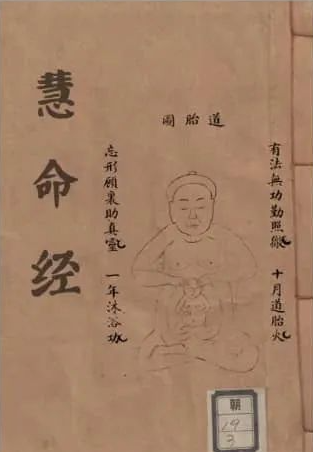 慧命经
道胎圖
有法無功勤照徹
十月道胎火
忘形顧裏助真靈
一年沐浴功
朝
19
3